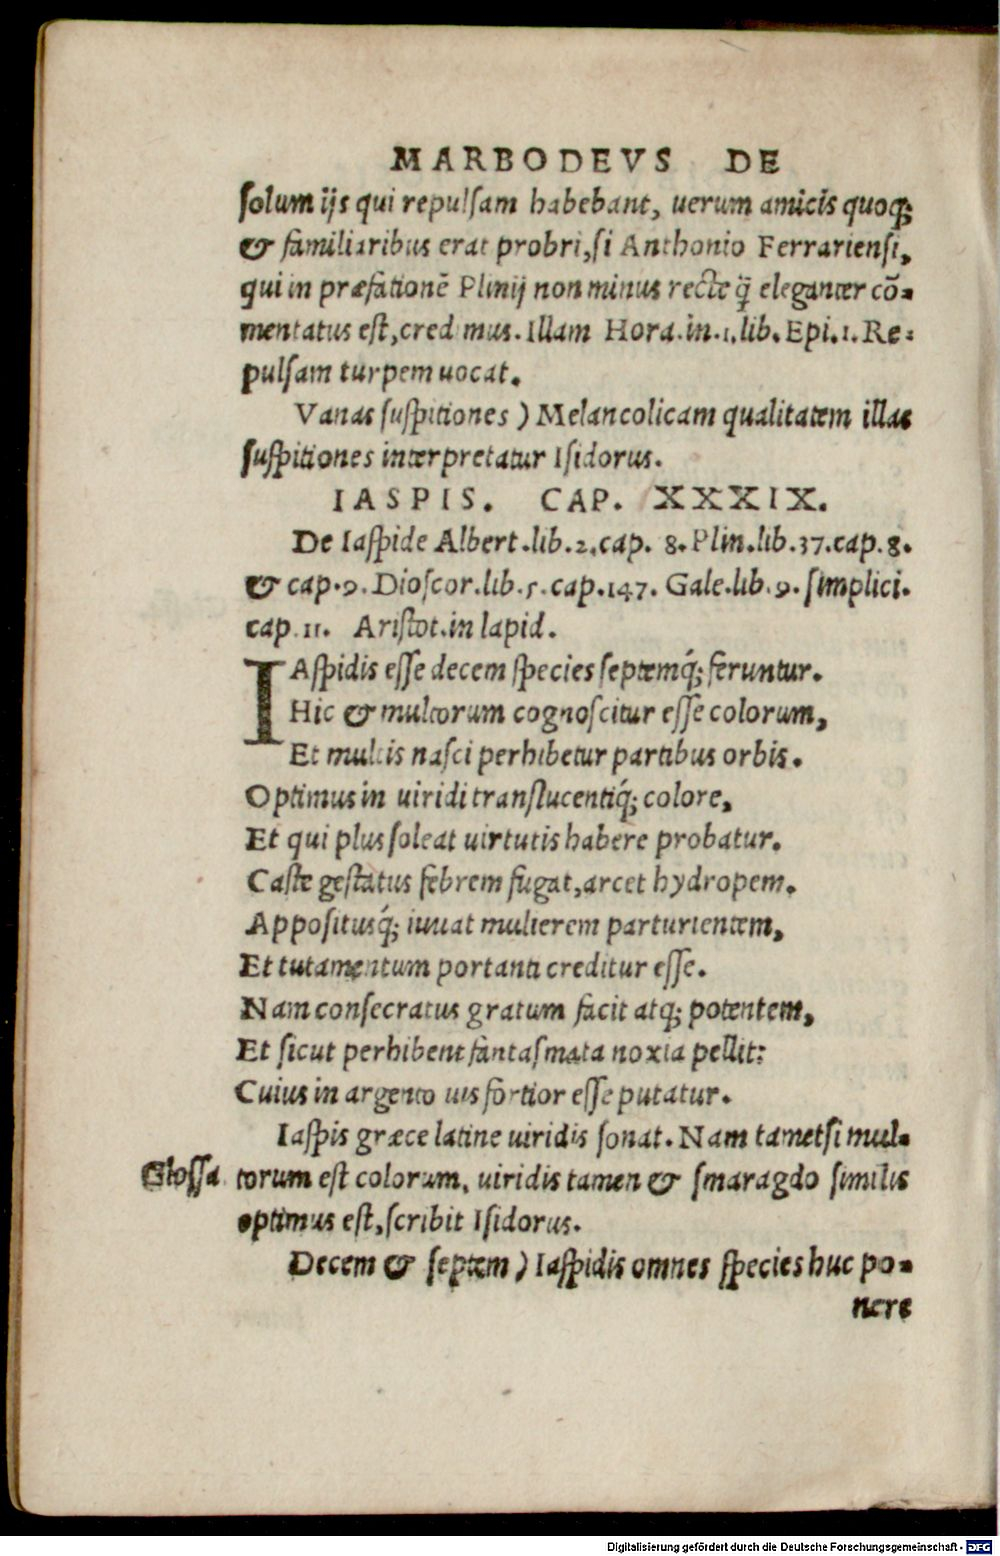 MARBODEVS DE
ſolum ijs qui repulſam habebant, uerum amicis quoq;
& familiaribus erat probri, ſi Anthonio Ferrarienſi,
qui in præfationē Plinij non minus recte q̄ eleganter cō-
mentatus eſt, credimus. Illam Hora. in. 1. lib. Epi. 1. Re-
pulſam turpem uocat.
Vanas ſuſpitiones ) Melancolicam qualitatem illas
ſuſpitiones interpretatur Iſidorus.
IASPIS. CAP. XXXIX.
De Iaſpide Albert. lib. 2. cap. 8. Plin. lib. 37. cap. 8.
& cap. 9. Dioſcor. lib. 5. cap. 147. Gale. lib. 9. ſimplici.
cap. 11. Ariſtot. in lapid.
IAſpidis eſſe decem ſpecies ſeptemq́; feruntur.
Hic & multorum cognoſcitur eſſe colorum,
Et multis naſci perhibetur partibus orbis.
Optimus in uiridi translucentiq́; colore,
Et qui plus ſoleat uirtutis habere probatur.
Caſte geſtatus febrem fugat, arcet hydropem.
Appoſitusq́; iuuat mulierem parturientem,
Et tutamentum portanti creditur eſſe.
Nam conſecratus gratum facit atq; potentem,
Et ſicut perhibent fantaſmata noxia pellit:
Cuius in argento uis fortior eſſe putatur.
Iaſpis græce latine uiridis ſonat. Nam tametſi mul-
Gloſſa torum eſt colorum, uiridis tamen & ſmaragdo ſimilis
optimus eſt, ſcribit Iſidorus.
Decem & ſeptem ) Iaſpidis omnes ſpecies huc po-
nere
Digitalisierung gefördert durch die Deutsche Forschungsgemeinschaft - DFG